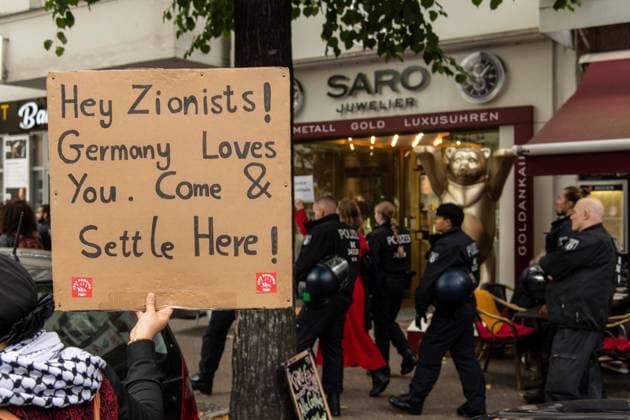 Hey Zionists!
Germany Loves
You. Come &
Settle Here!
SARO
JUWELIER
METALL GOLD LUXUSUHREN
GOLDANKAUF
POLIZEI
POLIZEI